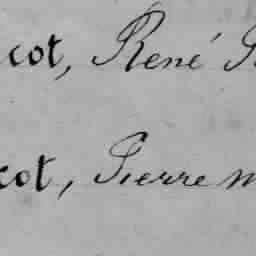 cot, René
cot, Pierre